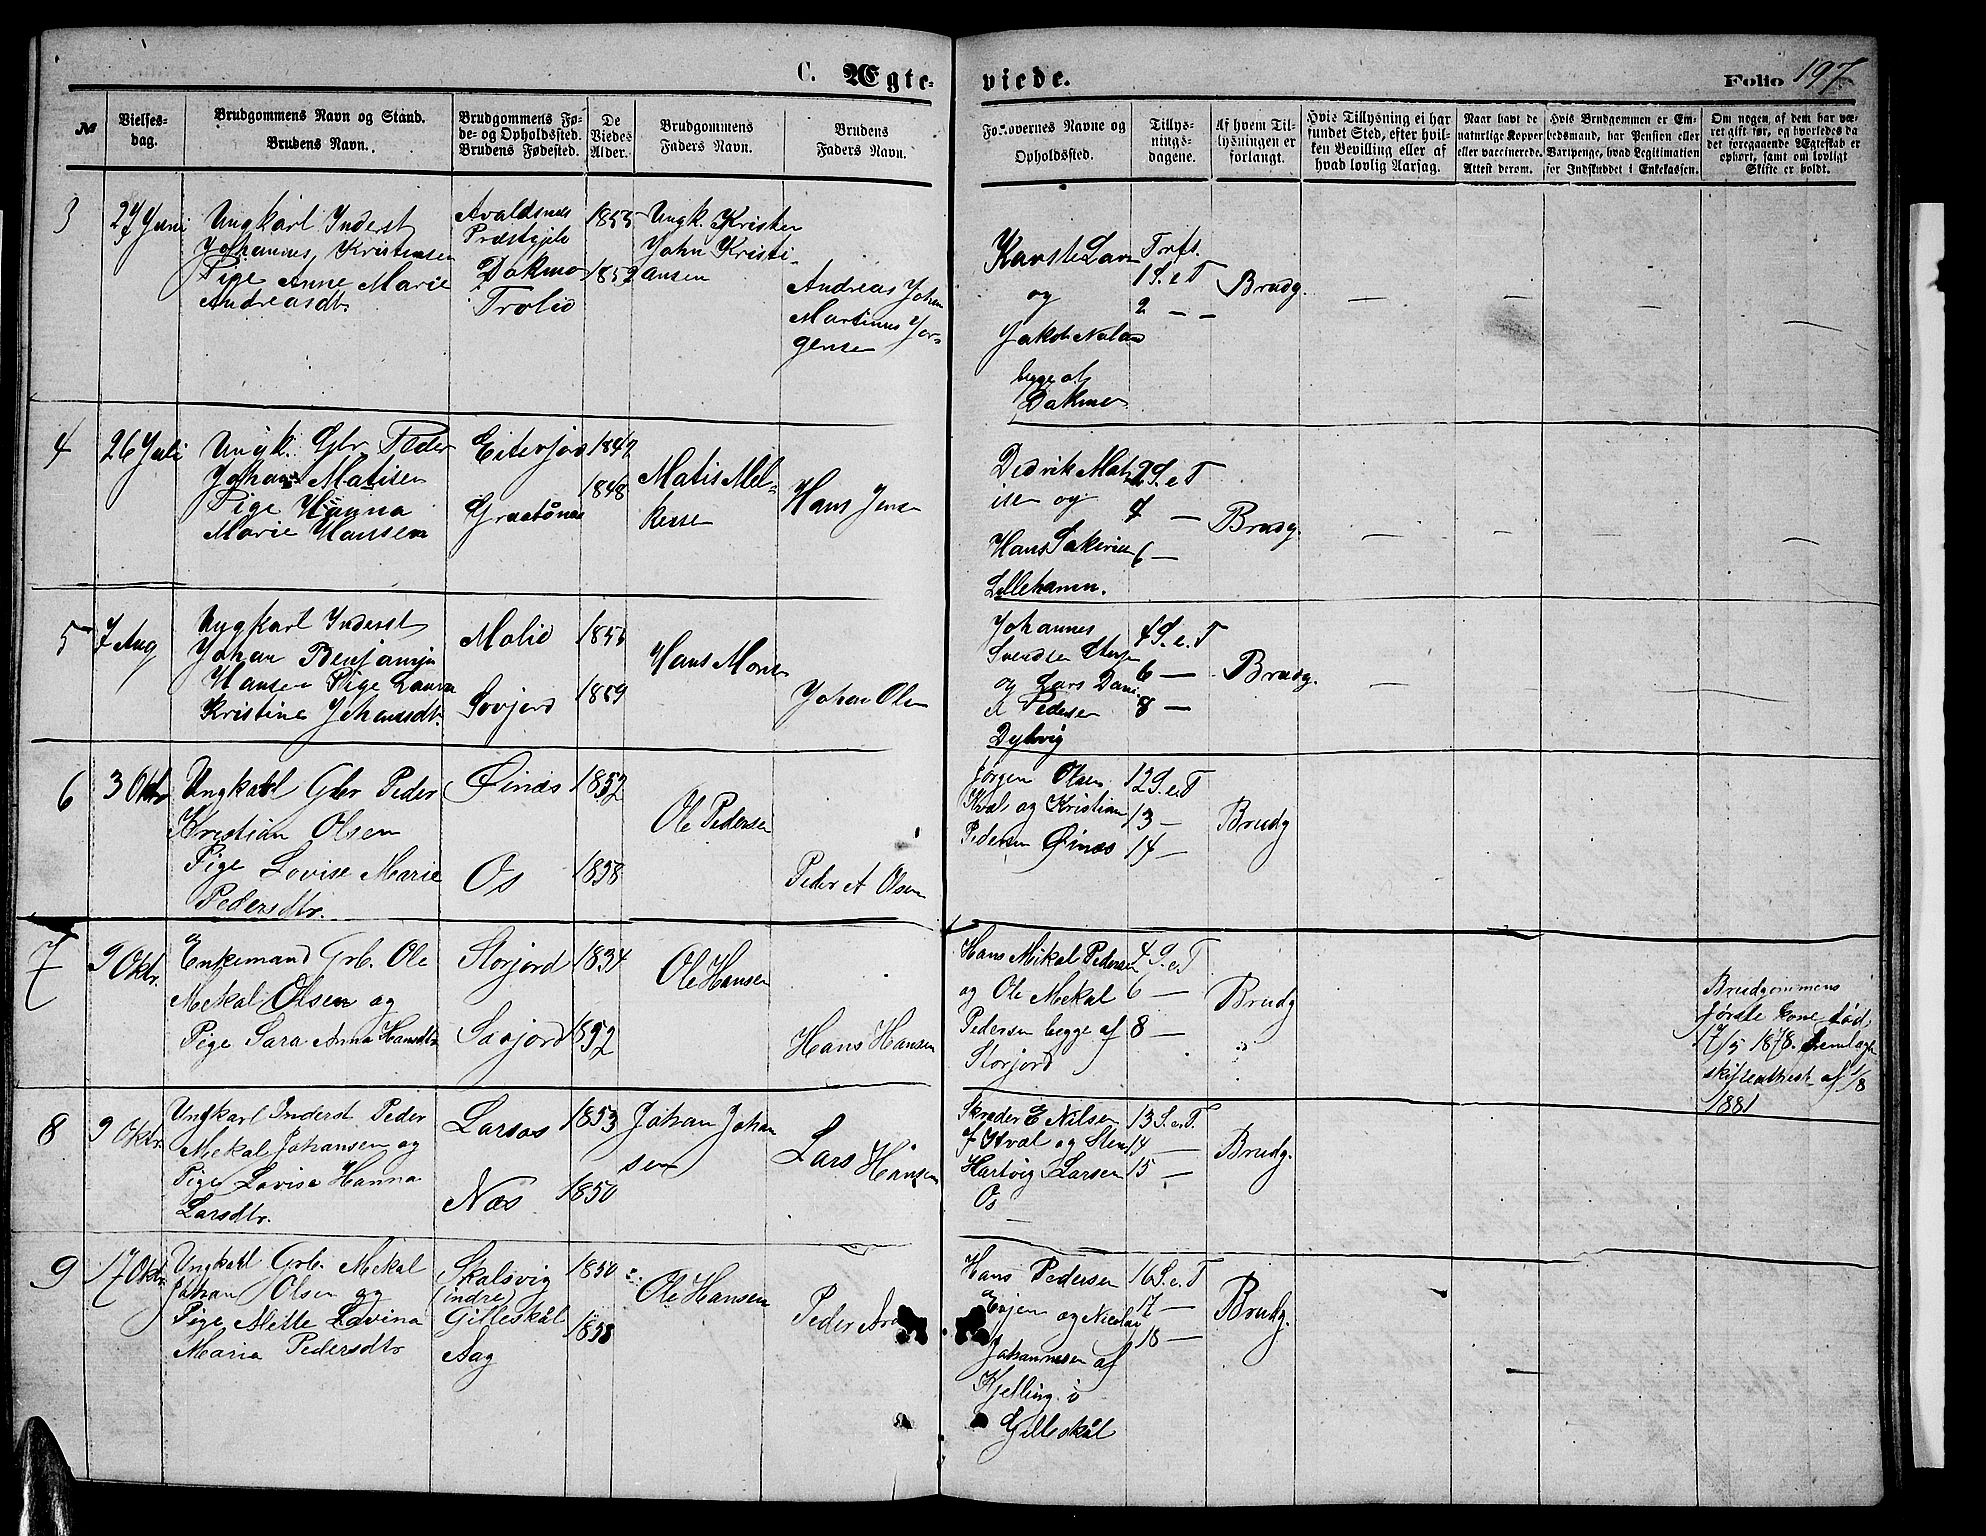 C. Ægte-
viede.
Folio 197.
№
Vielses-
dag.
Brudgommens Navn og Stand.
Brudens Navn.
Brudgommens Fø-
de- og Opholdssted.
Brudens Fødested.
De
Viedes
Alder.
Brudgommens
Faders Navn.
Brudens
Faders Navn.
Forlovernes Navne og
Opholdssted.
Tillys-
nings-
dagene.
Af hvem Til-
lysningen er
forlangt.
Hvis Tillysning ei har
fundet Sted, efter hvil-
ken Bevilling eller af
hvad lovlig Aarsag.
Naar havt de
naturlige Kopper
eller vaccinerede.
Attest derom.
Hvis Brudgommen er Em-
bedsmand, har Pension eller
Vartpenge, hvad Legitimation
for Indskuddet i Enkekassen.
Om nogen af dem har væ-
ret gift før, og hvorledes da
det foregaaende Ægteskab er
ophørt, samt om lovligt
Skifte er holdt.
3
27 Juni
Ungkarl Inderst
Johannes Kristensen
Pige Anne Marie
Andreasdtr.
Avaldsnes
Præstgjeld
1855
1852
Ungk. Kristen
John Kristi-
ansen
Andreas Johan
Martinus Jør-
gensen
og
1 S. e. T
2 — -
Brudg.
begge af
4
26 Juli
Ungk. Gbr. Peder
Johan Matisen
Pige Hanna
Marie Hansen
Eiterjord
1847
1848
Matis Mel-
Hans Jensen
Didrik Mat-
isen og
Hans
2 S. e. T
4 —
6 —
Brudg.
5
7 Aug
Ungkarl Inderst
Johan Benjamin
Hansen Pige Laura
Kristine Johansdtr.
Molid
Sovjord
1855
1859
Hans Mons
Johan Olsen
Johannes
Svendsen
og Lars Dani-
el Pedersen
4 S. e. T
6 —
8 —
Brudg.
6
3 Oktr
Ungkarl Gbr Peder
Kristian Olsen
Pige Lovise Marie
Pedersdtr.
Øinæs
Os
1852
1858
Ole Pedersen
Peder A Olsen
Jørgen Olsen
Kval og Kristian
Pedersen Øinæs
12 S. e. T
13 —
14 —
Brudg
7
9 Oktr.
Enkemand Grb. Ole
Mekal Olsen og
Pige Sara Anna Hansdtr
Storjord
Sørjord
1834
1852
Ole Hansen
Hans Hansen
Hans Mikal Pedersen
og Ole Mekal
Pedersen begge af
Storjord
4 S. e. T
6 —
8 —
Brudg
Brudgommens
første kone død
17/5 1878. Fremlagt
skifteattest af 1/8
1881
8
9 Oktr.
Ungkarl Inderst Peder
Mekal Johansen og
Pige Lovise Hanna
Larsdtr.
Larsos
Næs
1853
1850
Johan Johan
sen
Lars Hansen
Skræder E Nilsen
Hartvig Larsen
Os
13 S. e. T.
14 —
15 —
Brudg.
9
17 Oktr
Ungkarl Grb. Mekal
Johan Olsen og
Pige Mette Lovina
Maria Pedersdtr
Skalsvig
(indre)
Gilleskål
Aag
1850
1858
Ole Hansen
Peder
Hans Pedersen
Evjen og Nicolai
Johannesen af
Kjelling i
Gilleskål
16 S. e. T
17 —
18 —
Brudg.